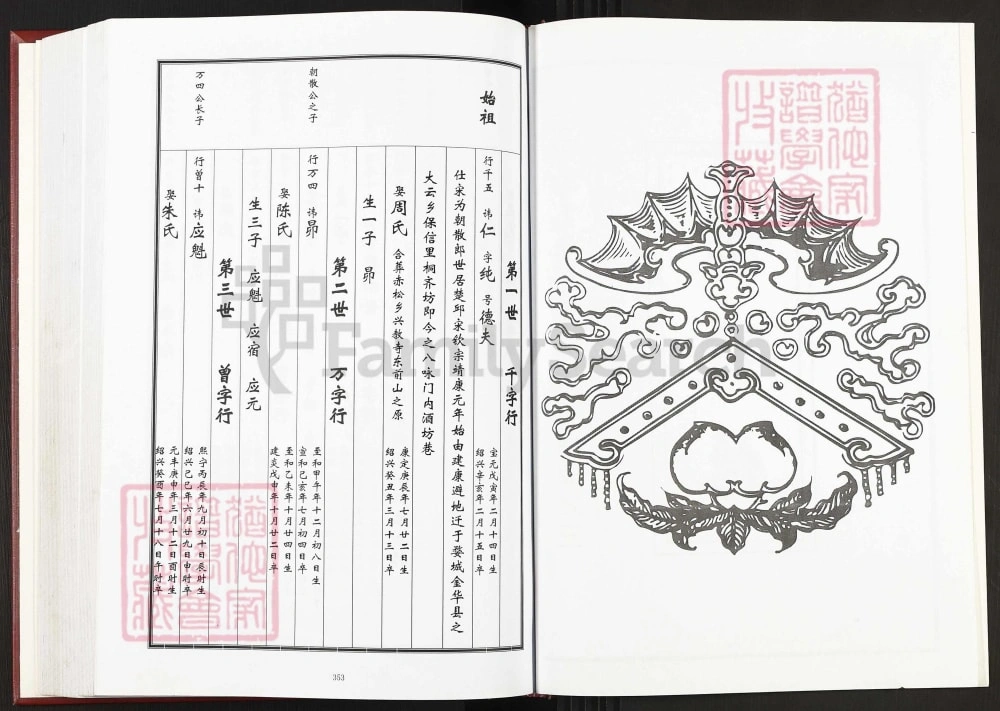 始祖
第一世 千字行
行千五 讳仁 字纯 号德夫
宝元戊寅年二月十四日生
绍兴辛亥年二月十五日卒
仕宋为朝散郎世居楚邱宋钦宗靖康元年始由建康避地迁于婺城金华县之
大云乡保信里桐齐坊即今之八咏门内酒坊巷
娶周氏 合葬赤松乡兴教寺东前山之原
康定庚辰年七月廿二日生
绍兴癸丑年三月十三日卒
生一子 昴
第二世 万字行
朝散公之子
行万四 讳昴
至和甲午年十二月初八日生
宣和己亥年七月初四日卒
娶陈氏
至和乙未年十月廿四日生
建炎戊申年十月廿二日卒
生三子 应魁 应宿 应元
第三世 曾字行
万四公长子
行曾十 讳应魁
熙宁丙辰年九月初十日辰时生
绍兴己巳年六月廿九日申时卒
娶朱氏
元丰庚申年三月十二日酉时生
绍兴癸酉年七月十八日午时卒
353
FamilySearch
犹他家
谱学会
收藏
犹他家
谱学会
收藏